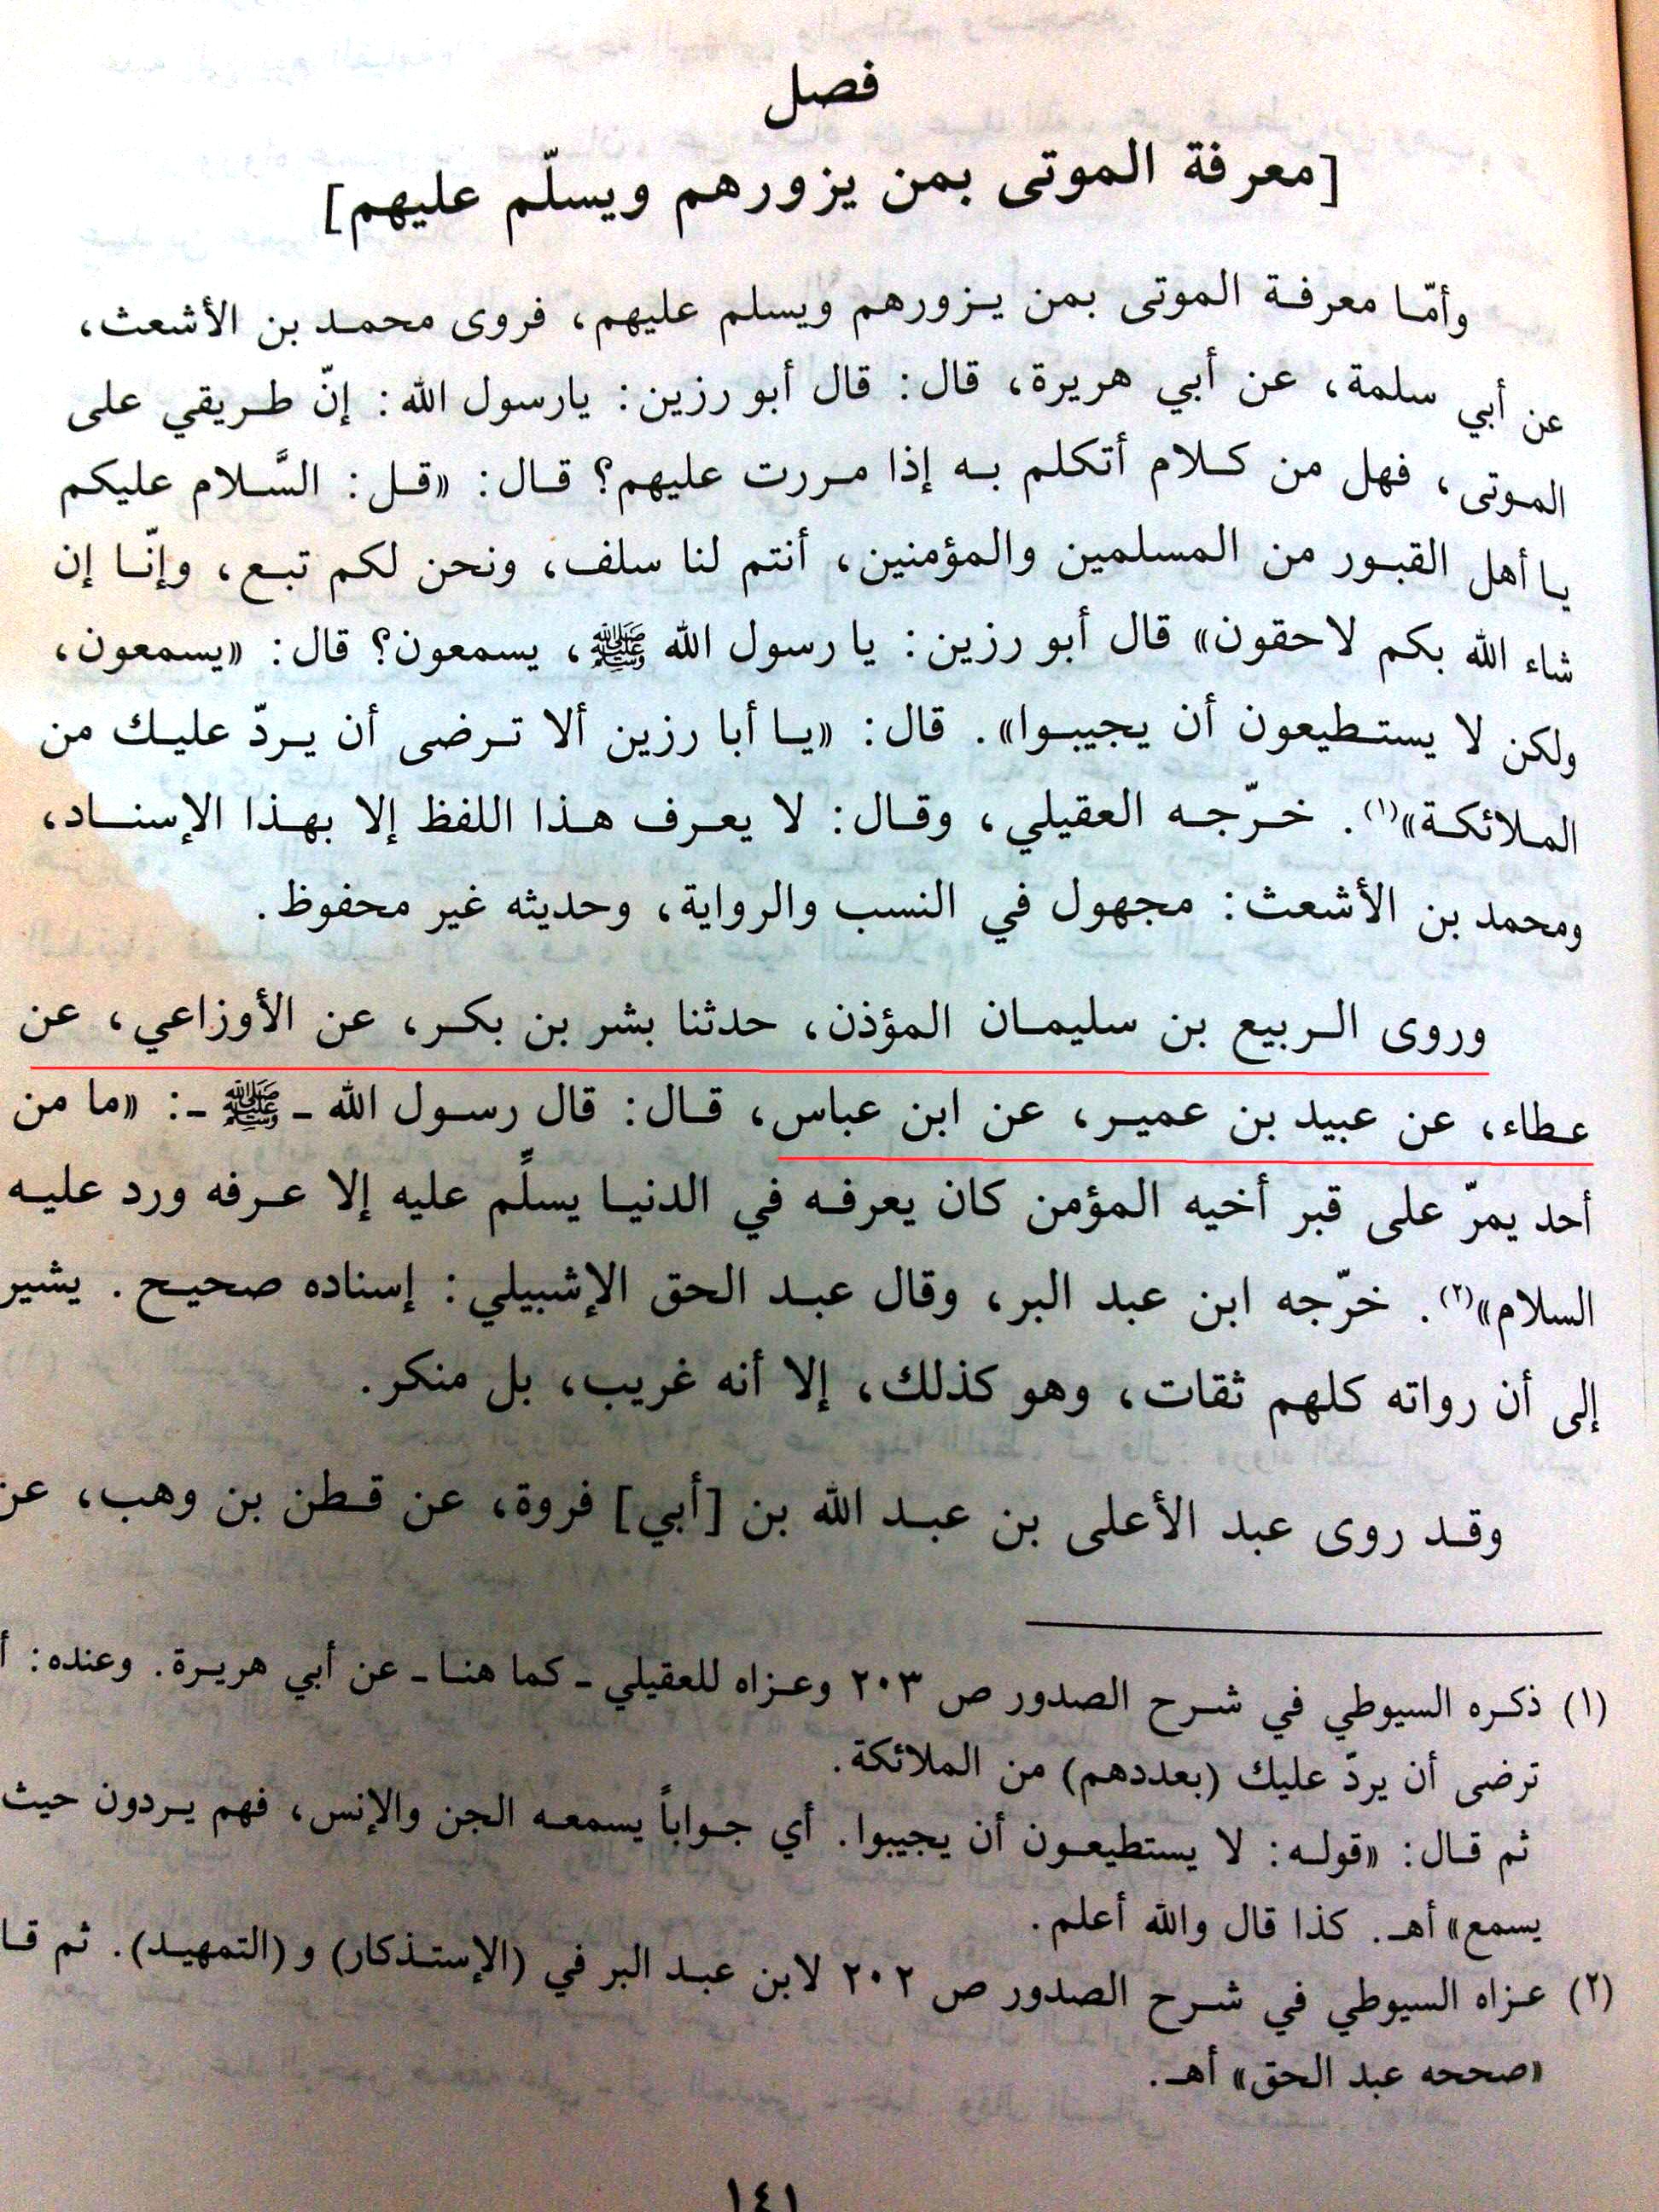 فصل
[معرفة الموتى بمن يزورهم ويسلّم عليهم]
وأمّـا معرفـة الموتى بمن يـزورهم ويسلم عليهم، فروى محمـد بن الأشعث،
عن أبي سلمة، عن أبي هريرة، قال: قال أبو رزين: يارسول الله: إنّ طـريقي على
المـوتى، فهل من كـلام أتكلم بـه إذا مـررت عليهم؟ قـال: «قـل: السَّـلام عليكم
يـا أهل القبـور من المسلمين والمؤمنين، أنتم لنا سلف، ونحن لكم تبـع، وإنّـا إن
شاء الله بكم لاحقون» قال أبو رزين: يا رسول الله ﷺ، يسمعون؟ قال: «يسمعون،
ولكن لا يستـطيعون أن يجيبـوا». قال: «يـا أبا رزين ألا تـرضى أن يـردّ عليـك من
المـلائكـة»(١). خـرّجـه العقيلي، وقـال: لا يعـرف هـذا اللفظ إلا بهـذا الإسنـاد،
ومحمد بن الأشعث: مجهول في النسب والرواية، وحديثه غير محفوظ.
وروى الـربيع بن سليمـان المؤذن، حدثنا بشر بن بكـر، عن الأوزاعي، عن
عـطاء، عن عبيد بن عميـر، عن ابن عباس، قـال: قال رسـول الله ـ ﷺ ـ: «ما من
أحد يمرّ على قبر أخيه المؤمن كان يعرفـه في الدنيـا يسلِّم عليه إلا عـرفه ورد عليـه
السلام»(٢). خرّجه ابن عبد البر، وقال عبـد الحق الإشبيلي: إسناده صحيـح. يشير
إلى أن رواته كلهم ثقات، وهو كذلك، إلا أنه غريب، بل منكر.
وقـد روى عبد الأعلى بن عبـد الله بن [أبي] فروة، عن قـطن بن وهب، عن
(١) ذكـره السيوطي في شـرح الصدور ص ٢٠٣ وعـزاه للعقيلي ـ كما هنـا ـ عن أبي هريـرة. وعنده:
ترضى أن يردّ عليك (بعددهم) من الملائكة.
ثم قـال: «قولـه: لا يستطيعـون أن يجيبوا. أي جـواباً يسمعـه الجن والإنس، فهم يـردون حيث
يسمع» أهـ. كذا قال والله أعلم.
(٢) عـزاه السيوطي في شـرح الصدور ص ٢٠٢ لابن عبـد البر في (الإستـذكار) و (التمهيـد). ثم
«صححه عبد الحق» أهـ.
١٤١